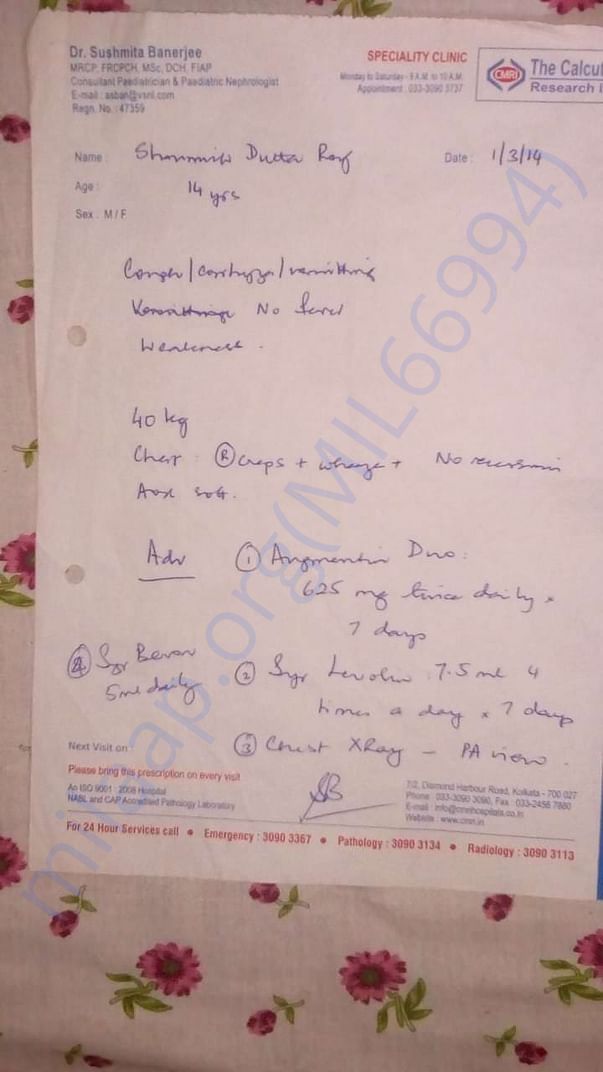 Dr. Sushmita Banerjee
MRCP, FRCPCH, MSc, DCH, FIAP
Consultant Paediatrician & Paediatric Nephrologist
E-mail : asban@vsnl.com
Regn. No. : 47359
SPECIALITY CLINIC
Monday to Saturday - 9 A.M. to 10 A.M.
Appointment : 033-3090 3737
CMRI
The Calcut
Research I
Name : Dutta Roy
Date : 1/3/14
Age : 14 yrs
Sex : M / F
Cough / coryza / vomiting
No fever
Weakness.
40 kg
Chest : (R) creps + wheeze + No recession
soft.
Adv
① Augmentin Duo :
625 mg twice daily x
7 days
④ Syr
5ml daily
② Syr Levolin 7.5 ml 4
times a day x 7 days
③ Chest XRay - PA view.
Next Visit on :
Please bring this prescription on every visit
An ISO 9001 : 2008 Hospital
NABL and CAP Accredited Pathology Laboratory
SB
7/2, Diamond Harbour Road, Kolkata - 700 027
Phone : 033-3090 3090, Fax : 033-2456 7880
E-mail : info@cmrihospitals.co.in
Website : www.cmri.in
For 24 Hour Services call • Emergency : 3090 3367 • Pathology : 3090 3134 • Radiology : 3090 3113
milaap.org(MIL66994)